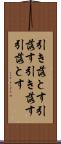 引き落とす引
落す引き落す
引落とす